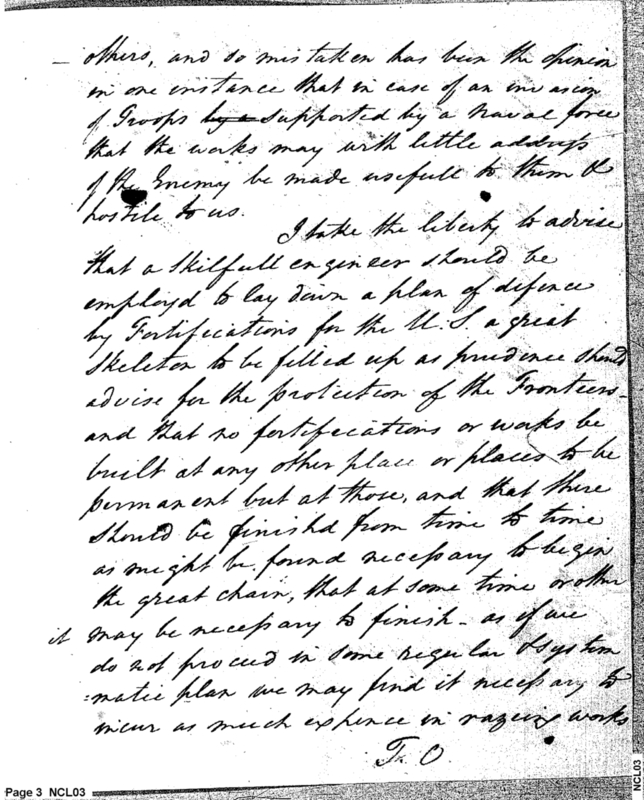 others, and so mistaken has been the opinion
in one instance that in case of an invasion
of Troops by a supported by a naval force
that the works may with little address
of the Enemy be made usefull to them &
hostile to us.
I take the liberty to advise
that a skilfull engineer should be
employd to lay down a plan of defence
by Fortifications for the U.S. a great
skeleton to be filled up as prudence should
advise for the protection of the Frontiers
and that no fortifications or works be
built at any other place or places to be
permanent but at those, and that there
should be finishd from time to time
as might be found necessary to begin
the great chain, that at some time or other
it may be necessary to finish - as if we
do not proceed in some regular & system
=matic plan we may find it necessary to
incur as much expence in razeing works
T. O
Page 3 NCL03
NCL03